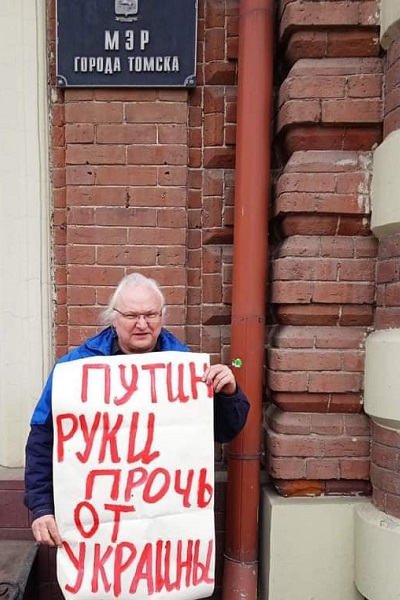 МЭР
ГОРОДА ТОМСКА
ПУТИН
РУКИ
ПРОЧЬ
ОТ
УКРАИНЫ